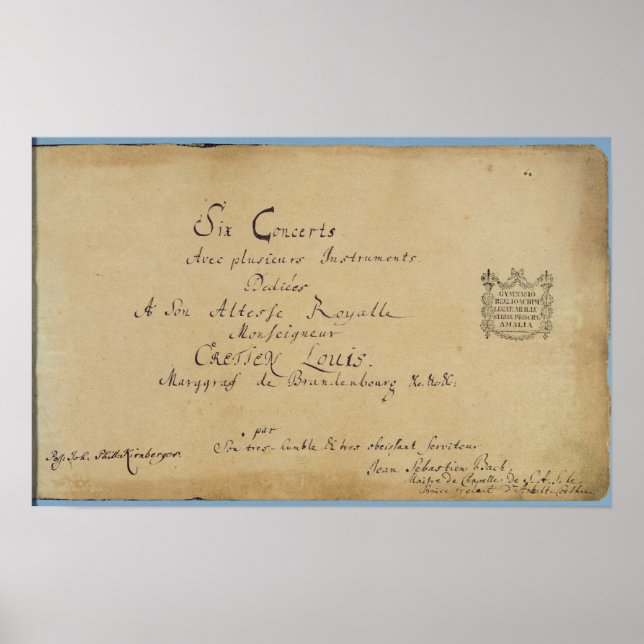 Six Concerts
Avec plusieurs Instruments.
Dediées
A Son Altesse Royalle
Monseigneur
CRETIEN LOUIS.
Marggraf de Brandenbourg &c:&c:&c:
par
Son tres-humble & tres obeissant serviteur
Jean Sebastien Bach,
Maitre de Chapelle de S. A. S. le
Prince regnant d'Anhalt-Coethen.
Poss: Joh. Phil. Kirnberger
GYMNASIO
REG. IOACHIM
LEGAT. AB ILLU
STRISS. PRINCIPE
AMALIA